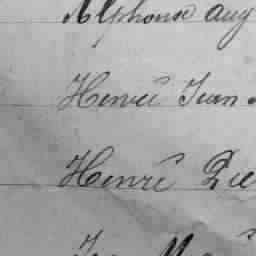 Alphonse Aug
Henri Jean
Henri Pie